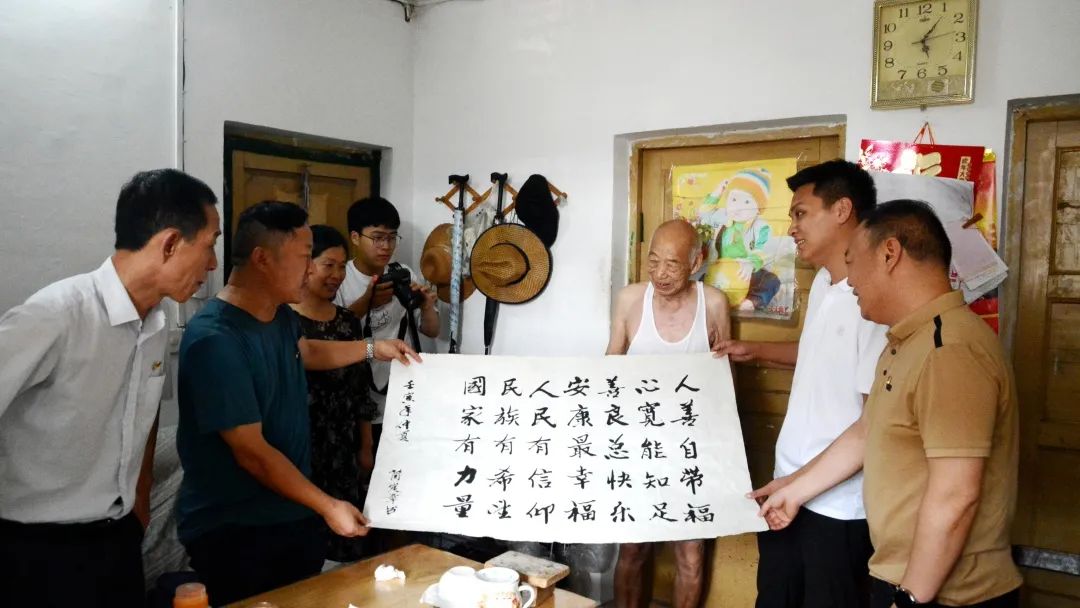 人善自帶福
心寬能知足
善良总快乐
安康最幸福
人民有信仰
民族有希望
國家有力量
壬寅年仲夏
12 1 2 3 4 5 6 7 8 9 10 11